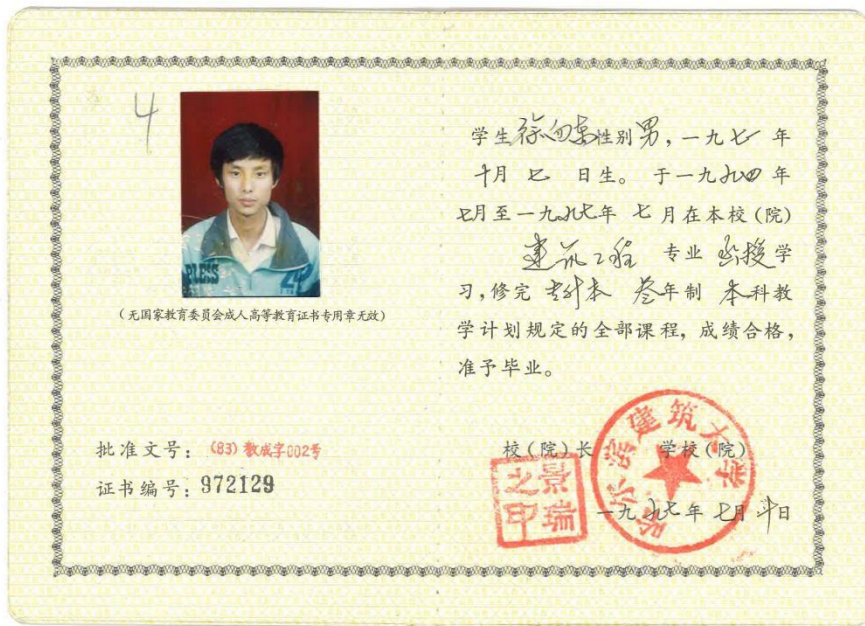 4
(无国家教育委员会成人高等教育证书专用章无效)
批准文号: (83)教成字002号
证书编号: 972129
学生徐向东性别男,一九七一年
十月七日生。于一九九四年
七月至一九九七年七月在本校(院)
建筑工程 专业 函授学
习,修完 专升本 叁年制 本科教
学计划规定的全部课程,成绩合格,
准予毕业。
校(院)长 学校(院)
景瑞之印
哈尔滨建筑大学
一九九七年七月 日